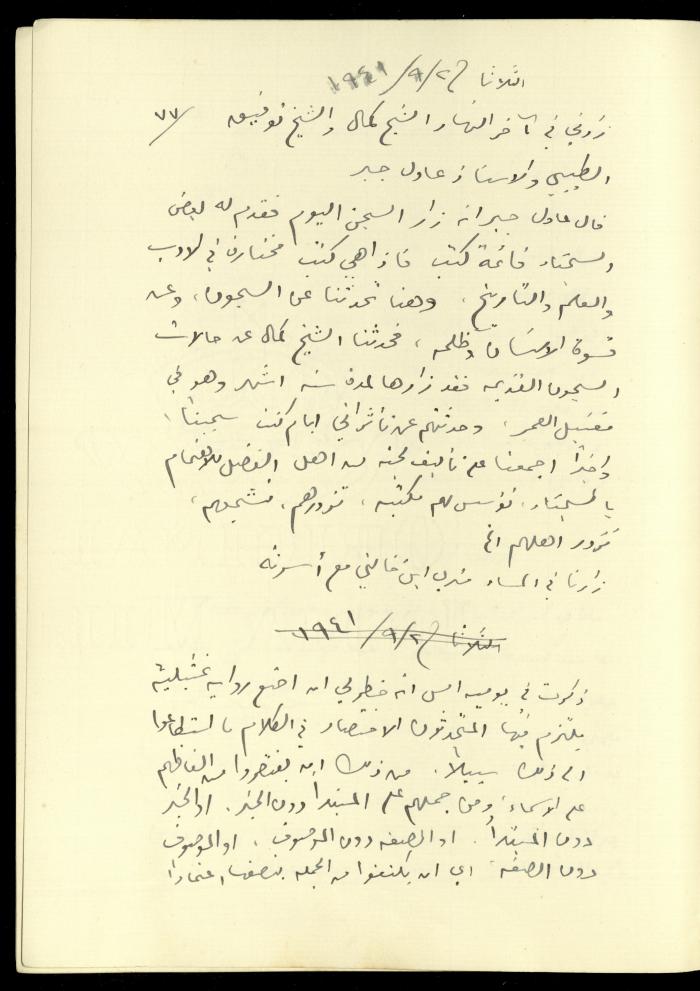 الثلاثا ٢/٩/١٩٤١
٧٧/
زارني في آخر النهار الشيخ كمال والشيخ توفيق
الطيبي والاستاذ عادل جبر
قال عادل جبر انه زار السجن اليوم فقدم له بعض
السجناء قائمة كتب فاذا هي كتب مختارة في الادب
والعلم والتاريخ. وهنا تحدثنا عن السجون، وعن
قسوة الانسان وظلمه، فحدثنا الشيخ كمال عن حالات
السجون القديمه فقد زارها لمدة ستة اشهر وهو في
مقتبل العمر، وحدثتهم عن تأثراتي ايام كنت سجيناً،
واخيراً اجمعنا على تأليف لجنه من اهل الفضل للاهتمام
بالسجناء، تؤسس لهم مكتبه، تزورهم، تشجعهم،
تزور اهلهم الخ
زارنا في المساء ابن خالتي مع أسرته
الثلاثا ٢/٩/١٩٤١
ذكرت في يومية امس انه خطر لي ان اضع رواية تمثيلية
يلتزم فيها المتحدثون الاقتصار في الكلام ما استطاعوا
الى ذلك سبيلاً. من ذلك ان يقتصروا من الفاظهم
على الاسماء ومن جملهم على المبتدأ دون الخبر. او الخبر
دون المبتدأ. او الصفه دون الموصوف. او الموصوف
دون الصفه. اي ان يكتفوا من الجمله بنصفها، اعتمادا